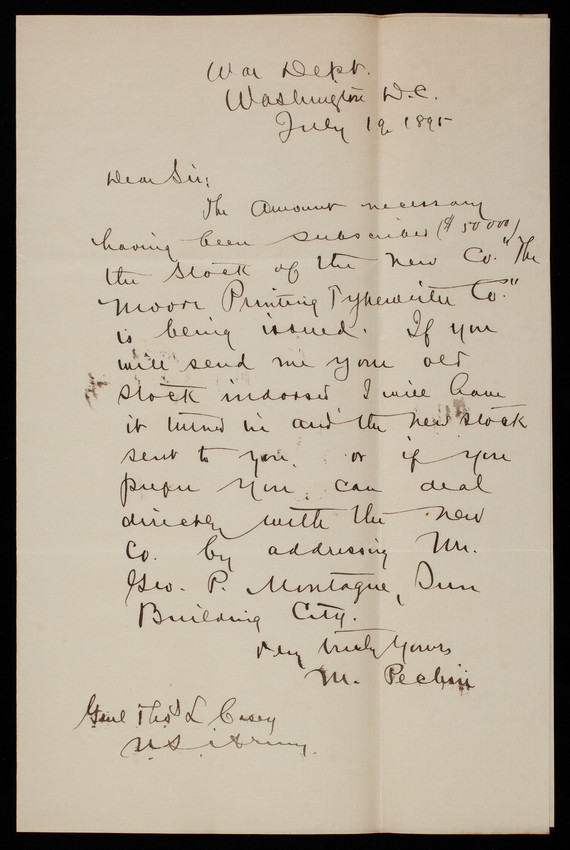 War Dept.
Washington D.C.
July 19, 1895
Dear Sir:
The amount necessary
having been subscribed ($50000)
the stock of the new Co. "The
Moore Printing Typewriter Co."
is being issued. If you
will send me your old
stock indorsed I will have
it turned in and the new stock
sent to you, or if you
prefer you can deal
directly with the new
Co. by addressing Mr.
Geo. P. Montague, Sun
Building City.
Very truly yours
M. Pechin
Genl Thos L Casey
U.S. Army.